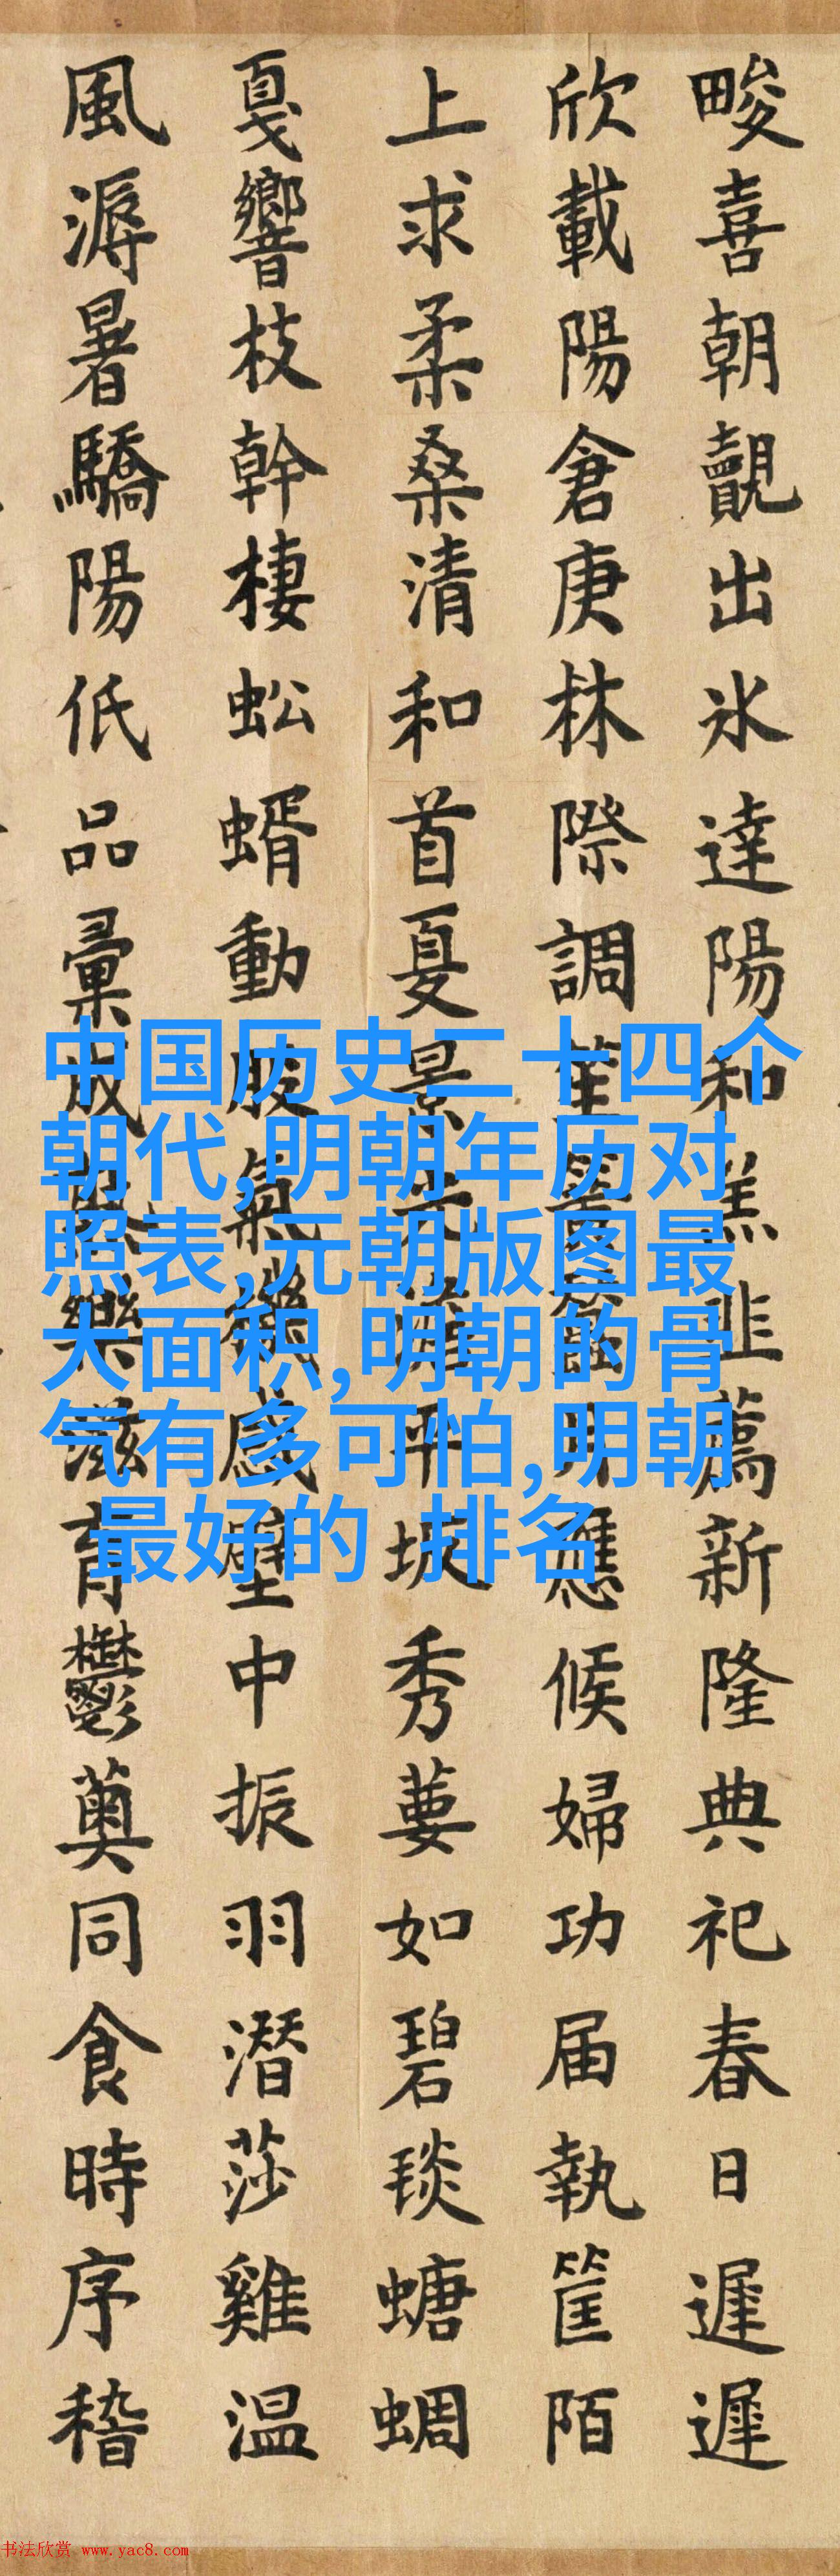 畯喜朝覿出氷達陽和羔韭薦新隆典祀春日遲遲
欣載陽倉庚林際調笙月應候婦功届執筐陌
上求柔桑清和首夏景平坂秀葽如碧琰螗蜩
戛響枝幹棲蚣蝑動股氣感壁中振羽潛莎雞温
風溽暑驕陽低品彙成樂滋育鬱薁同食時序稽
中国历史二十四个
朝代,明朝年历对
照表,元朝版图最
大面积,明朝的骨
气有多可怕,明朝
最好的 排名
书法欣赏 www.yac8.com